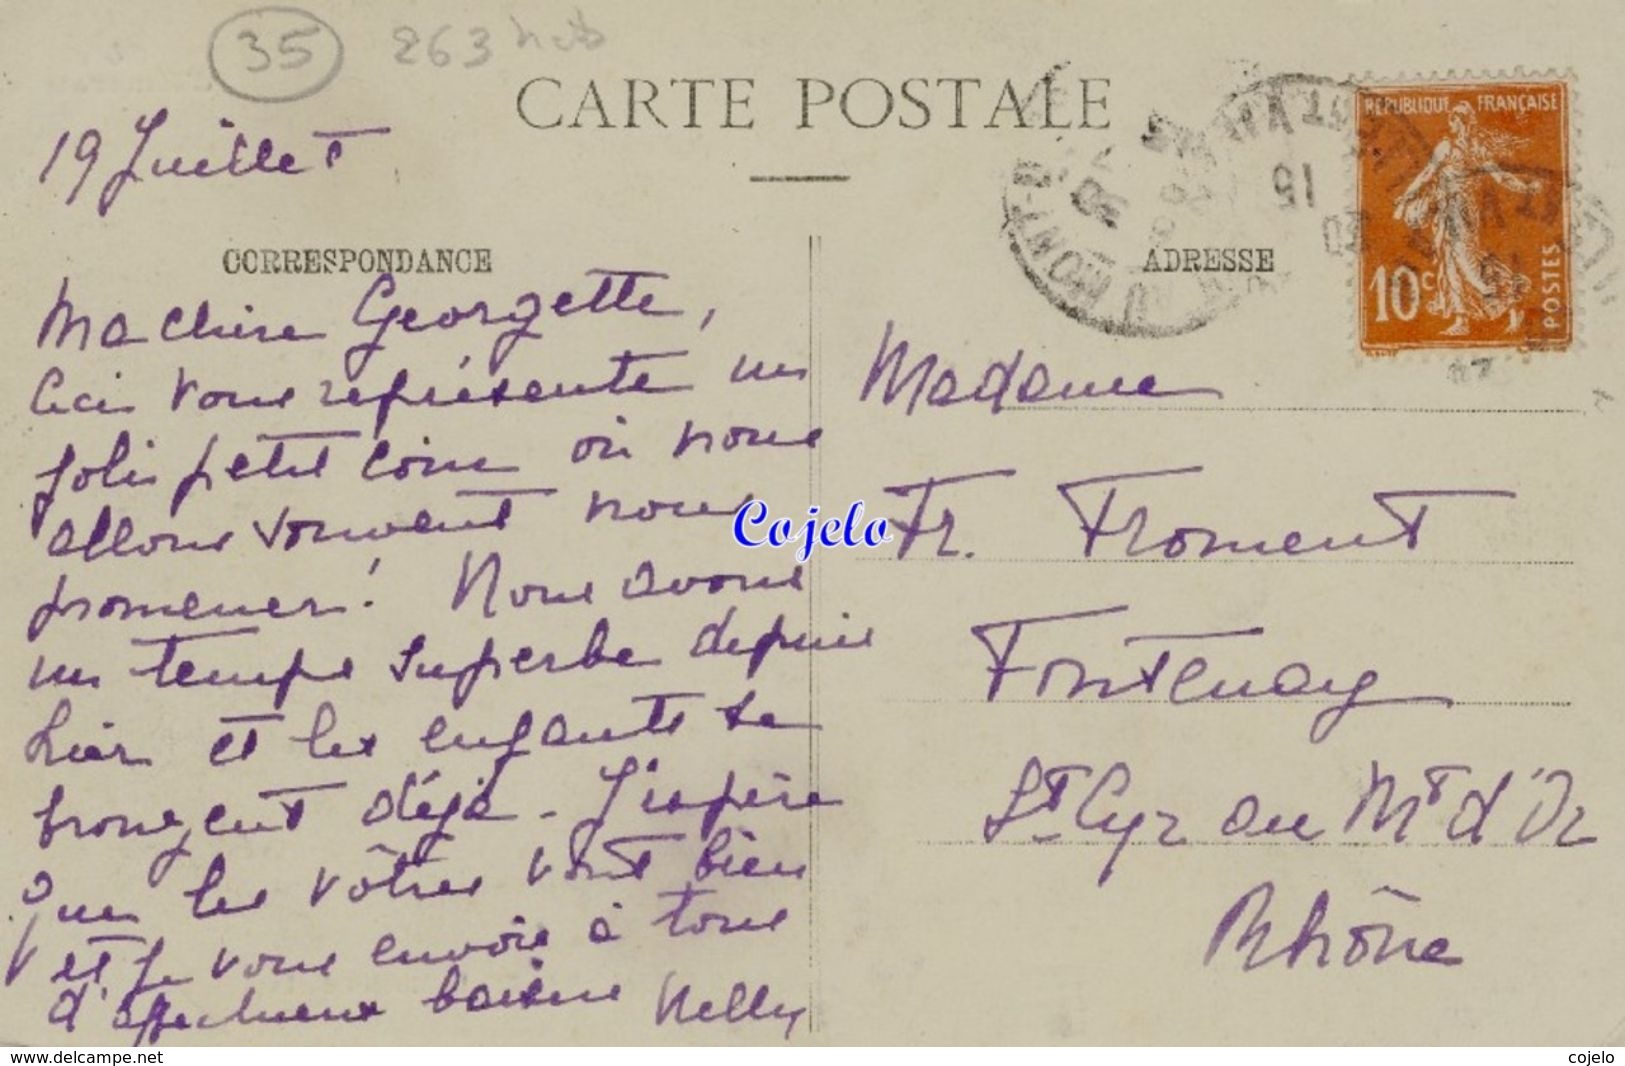 35
263
CARTE POSTALE
19 Juillet
RÉPUBLIQUE FRANÇAISE
10c
POSTES
CORRESPONDANCE
ADRESSE
Ma chère Georgette,
Ceci vous représente un
joli petit coin où nous
allons souvent nous
promener! Nous avons
un temps superbe depuis
hier et les enfants se
bronzent déjà - J'espère
que les vôtres vont bien
et je vous envoie à tous
d'affectueux baisers Nelly
Cojelo
Madame
Fr. Froment
Fontenay
St Cyr au Mt d'Or
Rhône
www.delcampe.net
cojelo